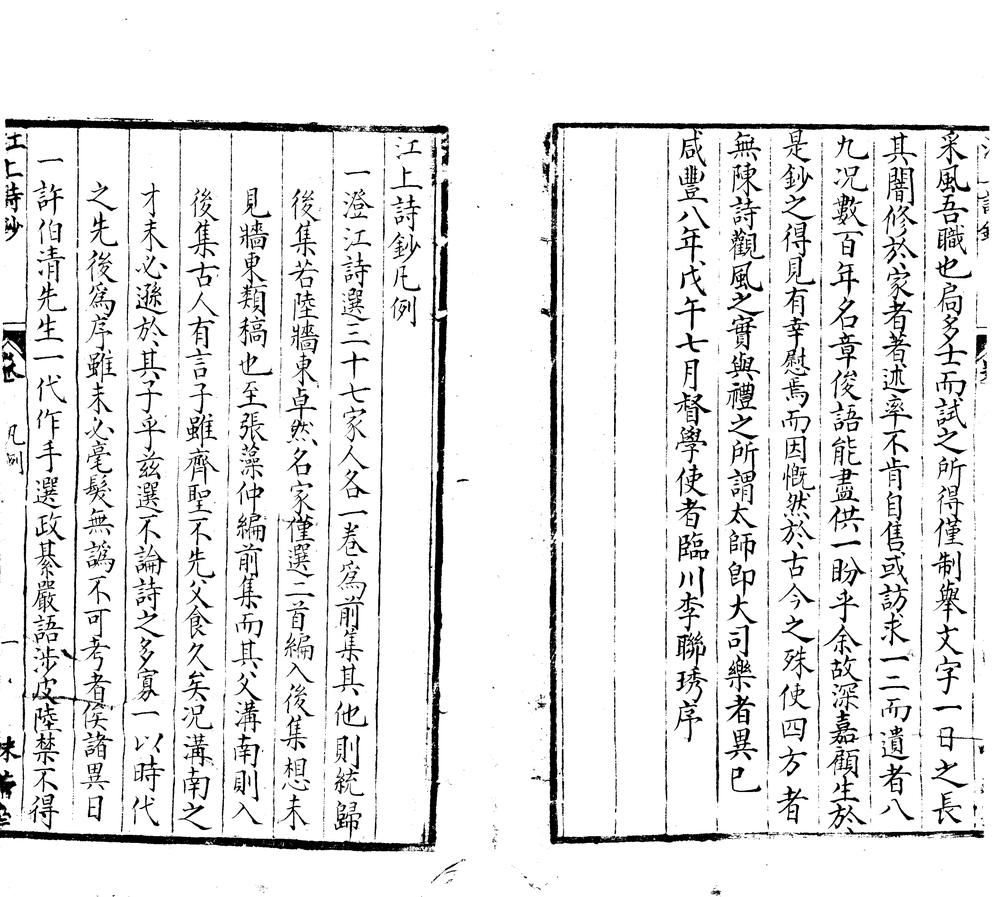 采風吾職也扃多士而試之所得僅制舉文字一日之長
其闇修於家者著述率不肯自售或訪求一二而遺者八
九况數百年名章俊語能盡供一盼乎余故深嘉顧生於
是鈔之得見有幸慰焉而因慨然於古今之殊使四方者
無陳詩觀風之實與禮之所謂太師卽大司樂者異已
咸豐八年戊午七月督學使者臨川李聯琇序
江上詩鈔凡例
一澄江詩選三十七家人各一卷爲前集其他則統歸
後集若陸牆東卓然名家僅選二首編入後集想未
見牆東類稿也至張藻仲編前集而其父溝南則入
後集古人有言子雖齊聖不先父食久矣况溝南之
才未必遜於其子乎茲選不論詩之多寡一以時代
之先後爲序雖未必毫髮無譌不可考者俟諸異日
一許伯清先生一代作手選政綦嚴語涉皮陸禁不得
江上詩鈔
凡例
一